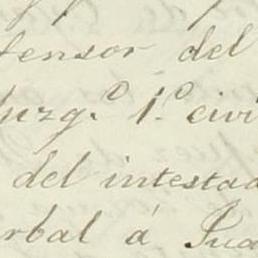 fensor del
Juzg.º 1.º civi
del intestad
rbal á Jua